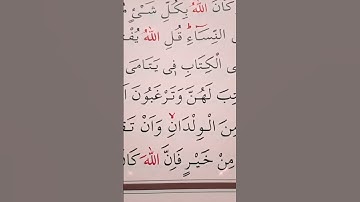 كَانَ اللهُ بِكُلِّ شَيْئٍ
النِّسَاءِ قُلِ اللهُ
الْكِتَابِ فِي يَتَامَى
لَهُنَّ وَتَرْغَبُونَ
مِنَ الْوِلْدَانِ وَاَنْ
مِنْ خَيْرٍ فَاِنَّ اللهَ كَانَ